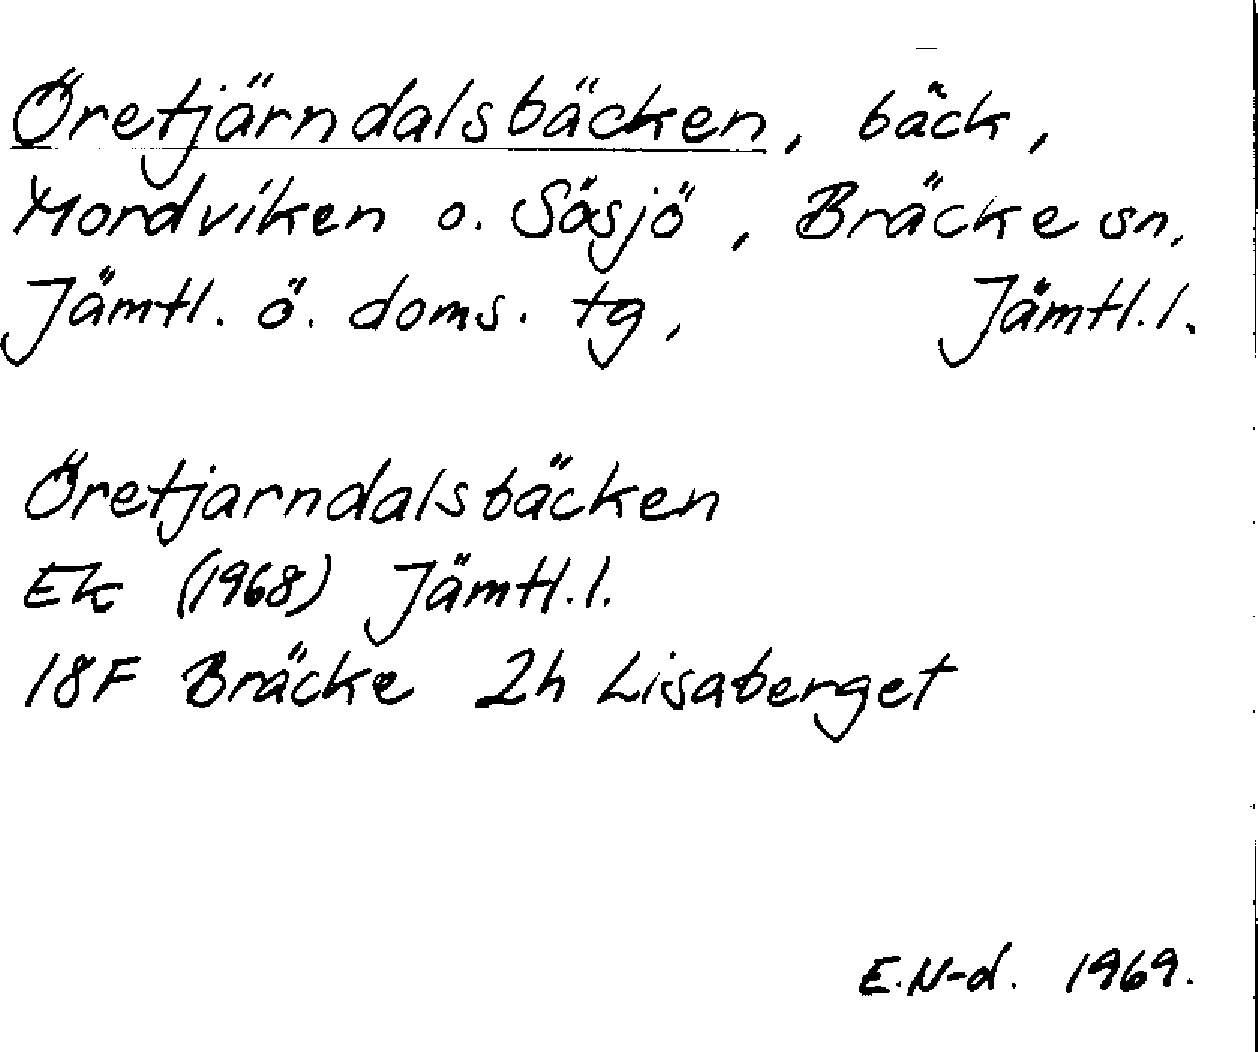 Öretjärndalsbäcken, bäck,
Mordviken o. Sösjö, Bräcke sn,
Jämtl. ö. doms. tg, Jämtl. l.
Öretjarndalsbäcken
Ek (1968) Jämtl. l.
18F Bräcke 2h Lisaberget
E. N-d. 1969.